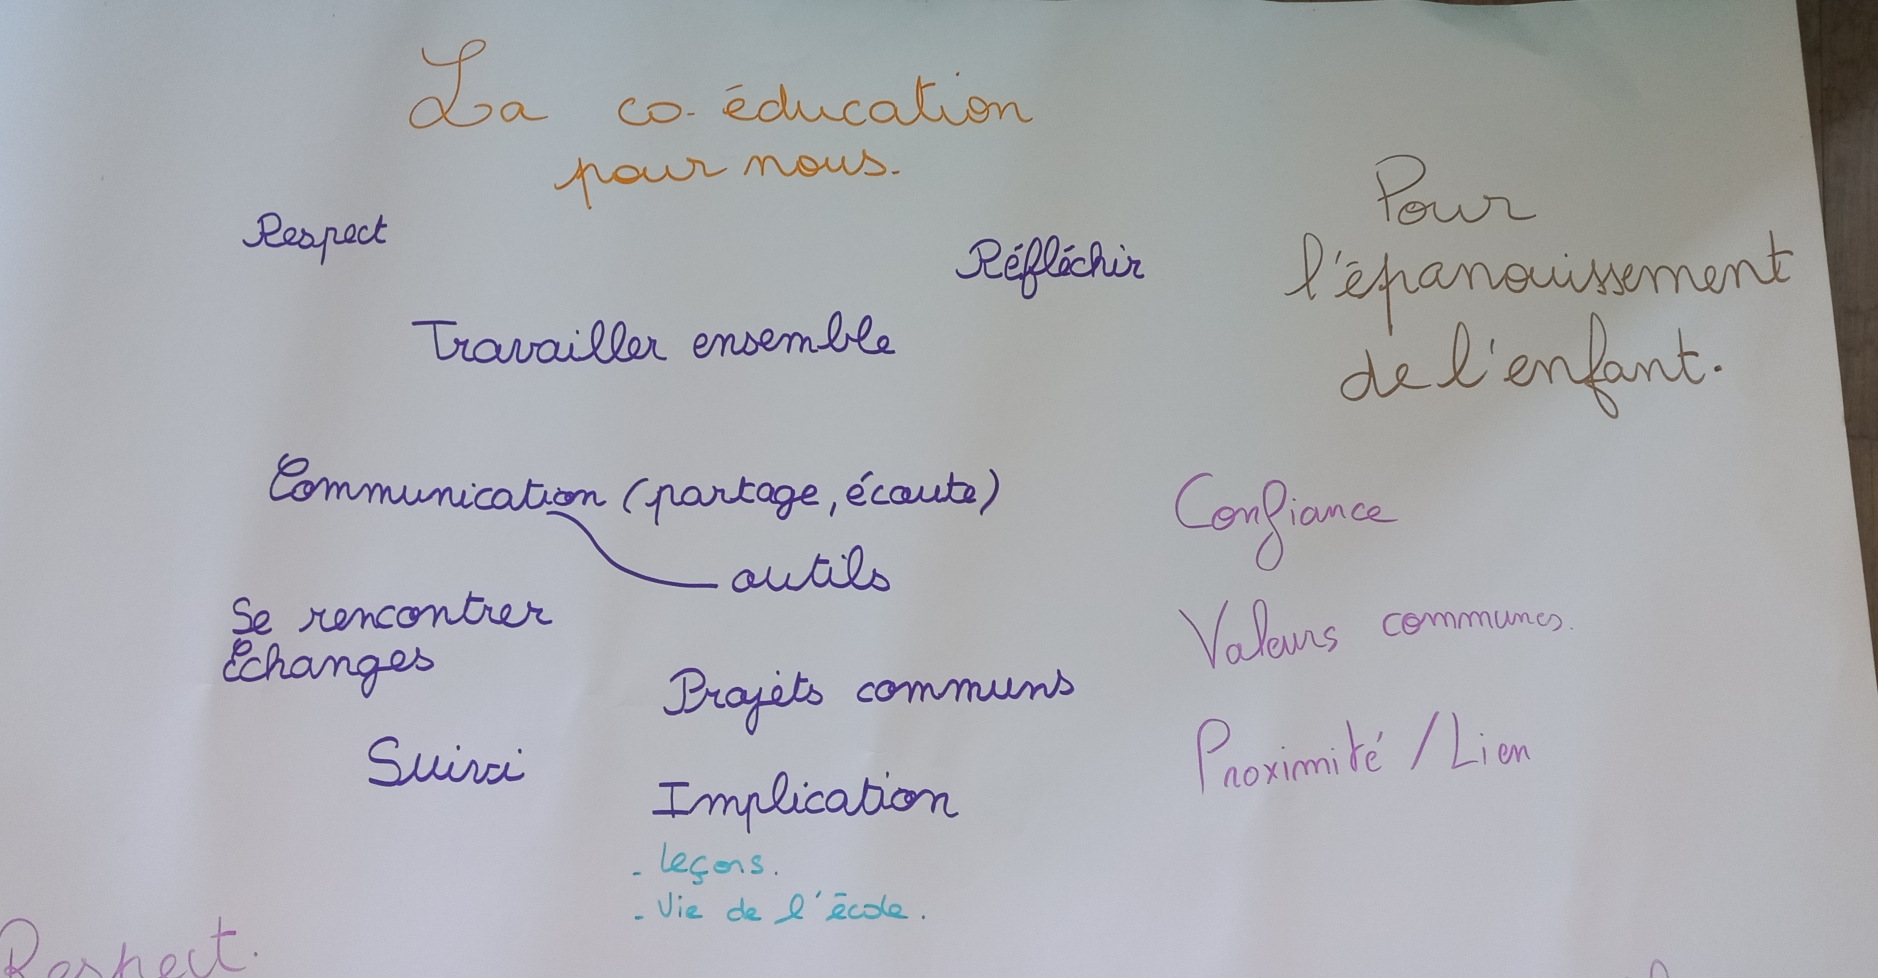 La co-éducation
pour nous.
Respect
Réfléchir
Pour
l'épanouissement
de l'enfant.
Travailler ensemble
Communication (partage, écoute)
outils
Confiance
Se rencontrer
Échanges
Valeurs communes.
Projets communs
Suivi
Proximité / Lien
Implication
- leçons.
- Vie de l'école.
Respect.